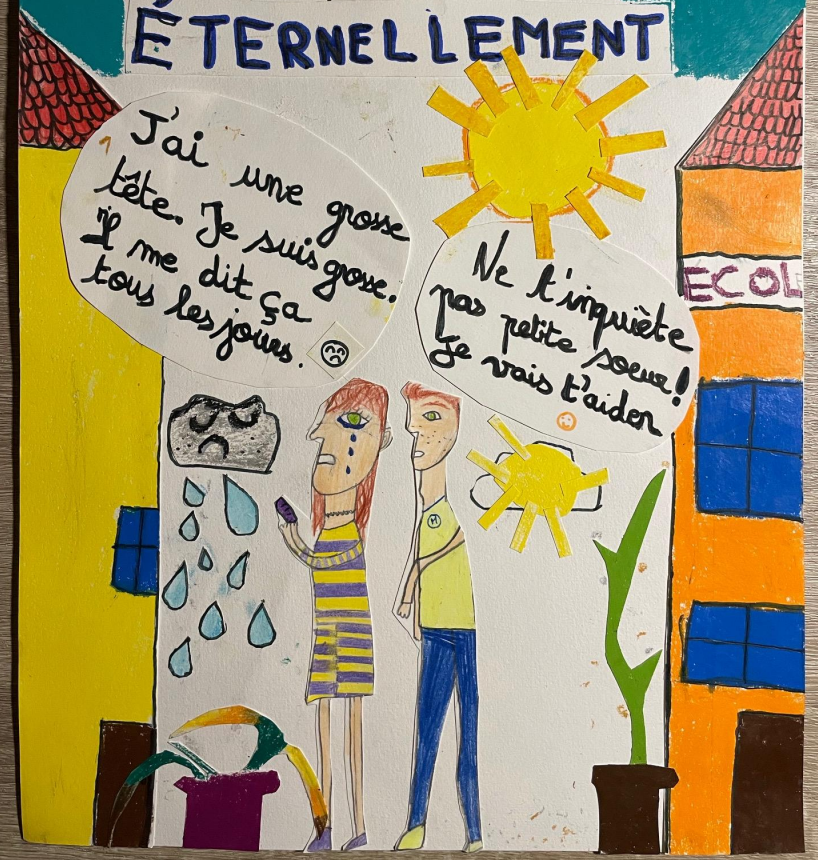 ÉTERNELLEMENT
J'ai une grosse
tête. Je suis grosse.
Il me dit ça
tous les jours.
Ne t'inquiète
pas petite soeur!
Je vais t'aider
ECOL
M